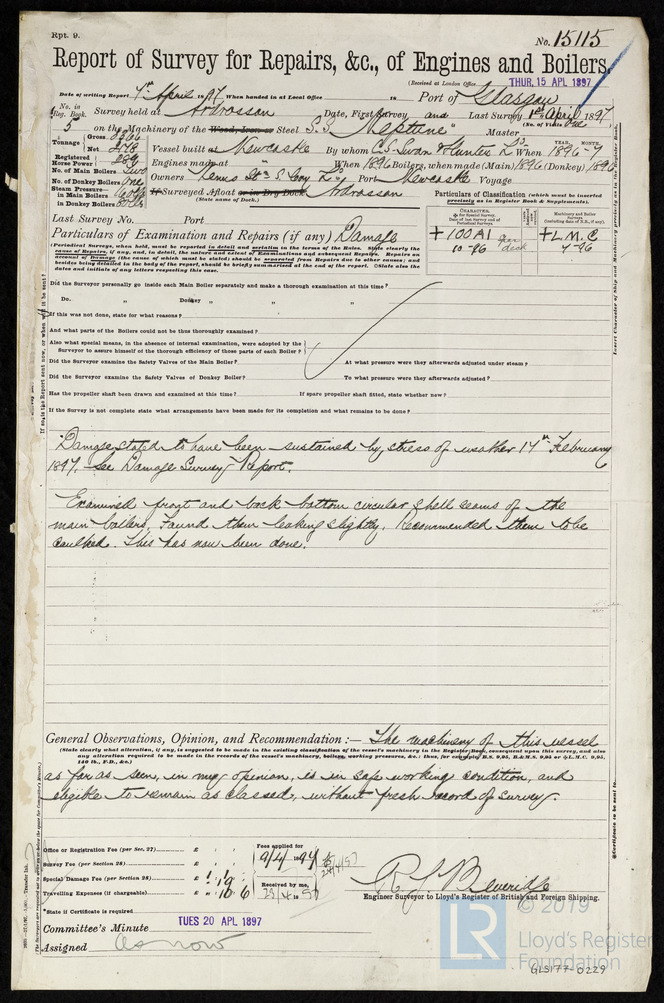 Rpt. 9.
No. 15115
Report of Survey for Repairs, &c., of Engines and Boilers.
(Received at London Office THUR, 15 APL 1897
Date of writing Report 7th April 1897 When handed in at Local Office to Port of Glasgow
No. in Reg. Book. Survey held at Ardrossan Date, First Survey and Last Survey 1st April 1897
5 on the Machinery of the Wood, Iron or Steel S.S. "Neptune" Master (No. of Visits One)
Tonnage Gross
Net
Vessel built at Newcastle By whom C.S. Swan & Hunter Ld. When YEAR. 1896 MONTH. 7
Registered Horse Power 289 Engines made at " When 1896 Boilers, when made (Main) 1896 (Donkey) 1896
No. of Main Boilers Two Owners S.S. Coy Ld. Port Newcastle Voyage
No. of Donkey Boilers One
Steam Pressure in Main Boilers
in Donkey Boilers
If Surveyed Afloat or in Dry Dock Ardrossan
(State name of Dock.)
Particulars of Classification (which must be inserted precisely as in Register Book & Supplements).
Last Survey No. Port
Particulars of Examination and Repairs (if any) Damage
CHARACTER.
Machinery and Boiler Surveys (including date of N.B., if any).
+100A1
10-96
+L.M.C
7-96
(Periodical Surveys, when held, must be reported in detail and seriatim in the terms of the Rules. State clearly the
causes of Repairs, if any, and, in detail, the nature and extent of Examinations and subsequent Repairs. Repairs on
account of Damage (the cause of which must be stated) should be separated from Repairs due to other causes; and
besides being detailed in the body of the report, should be briefly summarised at the end of the report. State also the
dates and initials of any letters respecting this case.
Did the Surveyor personally go inside each Main Boiler separately and make a thorough examination at this time?
Do. " Donkey " " "
If this was not done, state for what reasons?
And what parts of the Boilers could not be thus thoroughly examined?
Also what special means, in the absence of internal examination, were adopted by the
Surveyor to assure himself of the thorough efficiency of those parts of each Boiler?
Did the Surveyor examine the Safety Valves of the Main Boiler? At what pressure were they afterwards adjusted under steam?
Did the Surveyor examine the Safety Valves of Donkey Boiler? To what pressure were they afterwards adjusted?
Has the propeller shaft been drawn and examined at this time? If spare propeller shaft fitted, state whether new?
If the Survey is not complete state what arrangements have been made for its completion and what remains to be done?
Damage stated to have been sustained by stress of weather 17th February
1897. See Damage Survey Report.
Examined front and back bottom circular shell seams of the
main boilers. Found them leaking slightly. Recommended them to be
caulked. This has now been done.
General Observations, Opinion, and Recommendation :— The machinery of this vessel
(State clearly what alteration, if any, is suggested to be made in the existing classification of the vessel's machinery in the Register Book, consequent upon this survey, and also
any alteration required to be made in the records of the vessel's machinery, boilers, working pressures, &c.: thus, for example B.S. 9,95, B.&M.S. 9,95 or +L.M.C. 9,95,
140 lb., F.D., &c.)
as far as seen, in my opinion, is in safe working condition, and
eligible to remain as classed, without fresh record of survey.
Office or Registration Fee (per Sec. 27)... £ : :
Survey Fee (per Section 28)... £ : :
Special Damage Fee (per Section 28)... £ 1 : 1 :
Travelling Expenses (if chargeable)... £ : 10 : 6
Fees applied for
9/4 1897
Received by me,
*State if Certificate is required
R. J. Beveridge
Engineer Surveyor to Lloyd's Register of British and Foreign Shipping.
Committee's Minute TUES 20 APL 1897
Assigned as now
LR
© 2019
Lloyd's Register
Foundation
GLS177-0229